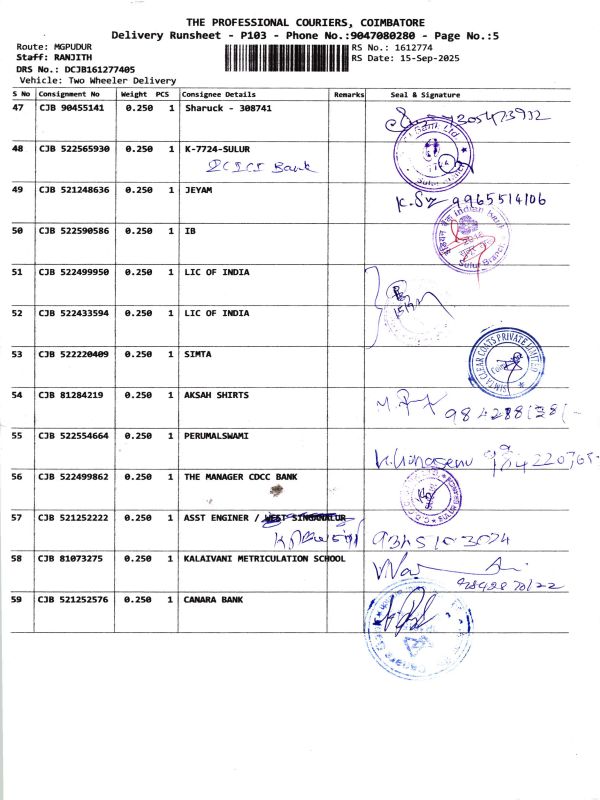 THE PROFESSIONAL COURIERS, COIMBATORE
Delivery Runsheet - P103 - Phone No.:9047080280 - Page No.:5
Route: MGPUDUR
RS No.: 1612774
Staff: RANJITH
RS Date: 15-Sep-2025
DRS No.: DCJB161277405
Vehicle: Two Wheeler Delivery
S No Consignment No Weight PCS Consignee Details Remarks Seal & Signature
47 CJB 90455141 0.250 1 Sharuck - 308741
48 CJB 522565930 0.250 1 K-7724-SULUR
ICICI Bank
49 CJB 521248636 0.250 1 JEYAM 9965514106
50 CJB 522590586 0.250 1 IB
Indian Bank
Sulur Branch
51 CJB 522499950 0.250 1 LIC OF INDIA
52 CJB 522433594 0.250 1 LIC OF INDIA
53 CJB 522220409 0.250 1 SIMTA
SIMTA CLEAR COATS PRIVATE LIMITED
54 CJB 81284219 0.250 1 AKSAH SHIRTS
55 CJB 522554664 0.250 1 PERUMALSWAMI
56 CJB 522499862 0.250 1 THE MANAGER CDCC BANK
57 CJB 521252222 0.250 1 ASST ENGINER / WEST SINGANALUR
58 CJB 81073275 0.250 1 KALAIVANI METRICULATION SCHOOL
59 CJB 521252576 0.250 1 CANARA BANK